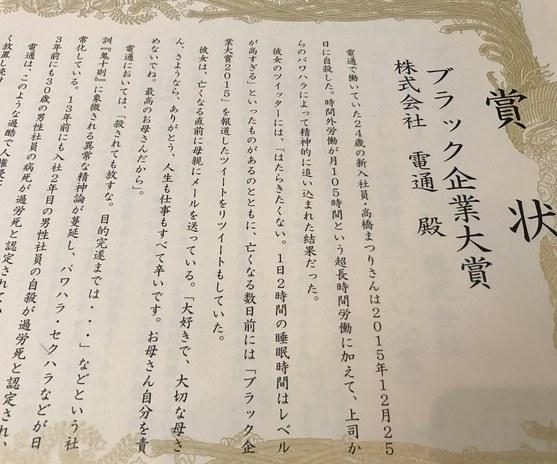 賞状
ブラック企業大賞
株式会社 電通 殿
電通で働いていた24歳の新入社員・高橋まつりさんは2015年12月25
日に自殺した。時間外労働が月105時間という超長時間労働に加えて、上司か
らのパワハラによって精神的に追い込まれた結果だった。
彼女のツイッターには、「はたらきたくない。1日2時間の睡眠時間はレベル
が高すぎる」といったものがあるのとともに、亡くなる数日前には「ブラック企
業大賞2015」を報道したツイートをリツイートもしていた。
彼女は、亡くなる直前に母親にメールを送っている。「大好きで、大切な母さ
ん、さようなら、ありがとう、人生も仕事もすべて辛いです。お母さん自分を責
めないでね。最高のお母さんだから」。
電通においては、「殺されても放すな。目的完遂までは・・・」などという社
訓『鬼十則』に象徴される異常な精神論が蔓延し、パワハラ・セクハラなどが日
常化している。13年前にも入社2年目の男性社員の自殺が過労死と認定され、
3年前にも30歳の男性社員の病死が過労死と認定されてい
電通は、このような過酷で人権侵
く放置し続け